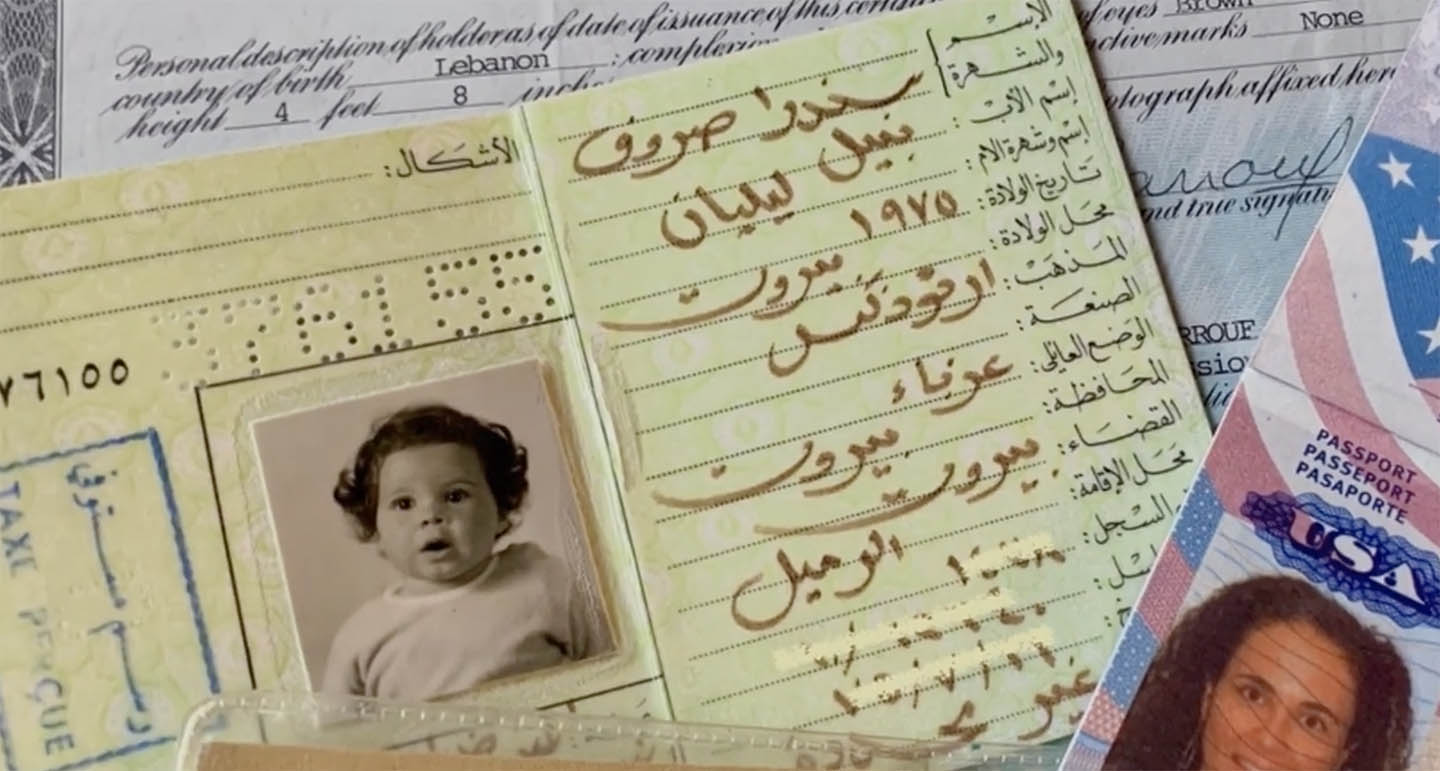 Personal description of holder as of date of issuance of this
country of birth Lebanon : complexion
height 4 feet 8 inches
of eyes Brown
marks None
photograph affixed
and true
RROUF
الأشكال:
٧٦١٥٥
رسم مستوفى
TAXE PERÇUE
الإسم والشهرة: سندرا صروف
إسم الأب: نبيل
إسم وشهرة الام: ليليان
تاريخ الولادة: ١٩٧٥
محل الولادة: بيروت
المذهب: ارثوذكس
الصنعة:
الوضع العائلي: عزباء
المحافظة: بيروت
القضاء: بيروت
محل الإقامة: الرميل
السجل:
PASSPORT
PASSEPORT
PASAPORTE
USA